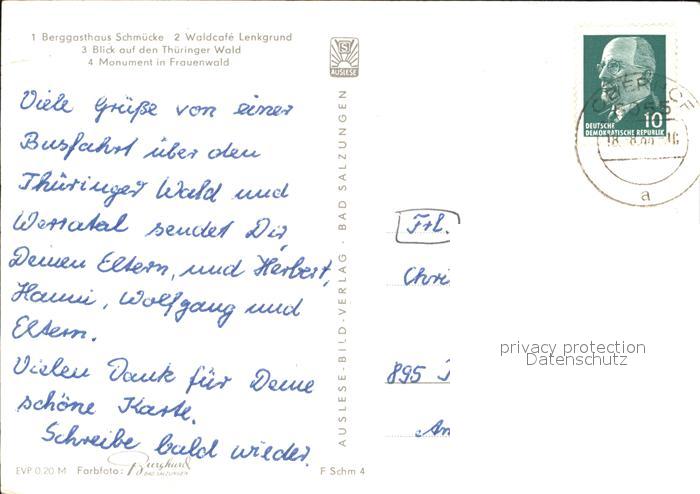 1 Berggasthaus Schmücke 2 Waldcafé Lenkgrund
3 Blick auf den Thüringer Wald
4 Monument in Frauenwald
AUSLESE
DEUTSCHE
DEMOKRATISCHE REPUBLIK
10
a
Viele Grüße von einer
Busfahrt über den
Thüringer Wald und
Werratal sendet Dir
Deinen Eltern, und Herbert,
Hanni, Wolfgang und
Eltern.
Vielen Dank für Deine
schöne Karte.
Schreibe bald wieder.
AUSLESE-BILD-VERLAG · BAD SALZUNGEN
Frl.
Chri
895
An
privacy protection
Datenschutz
EVP 0.20 M Farbfoto: Burghard
BAD SALZUNGEN
F Schm 4